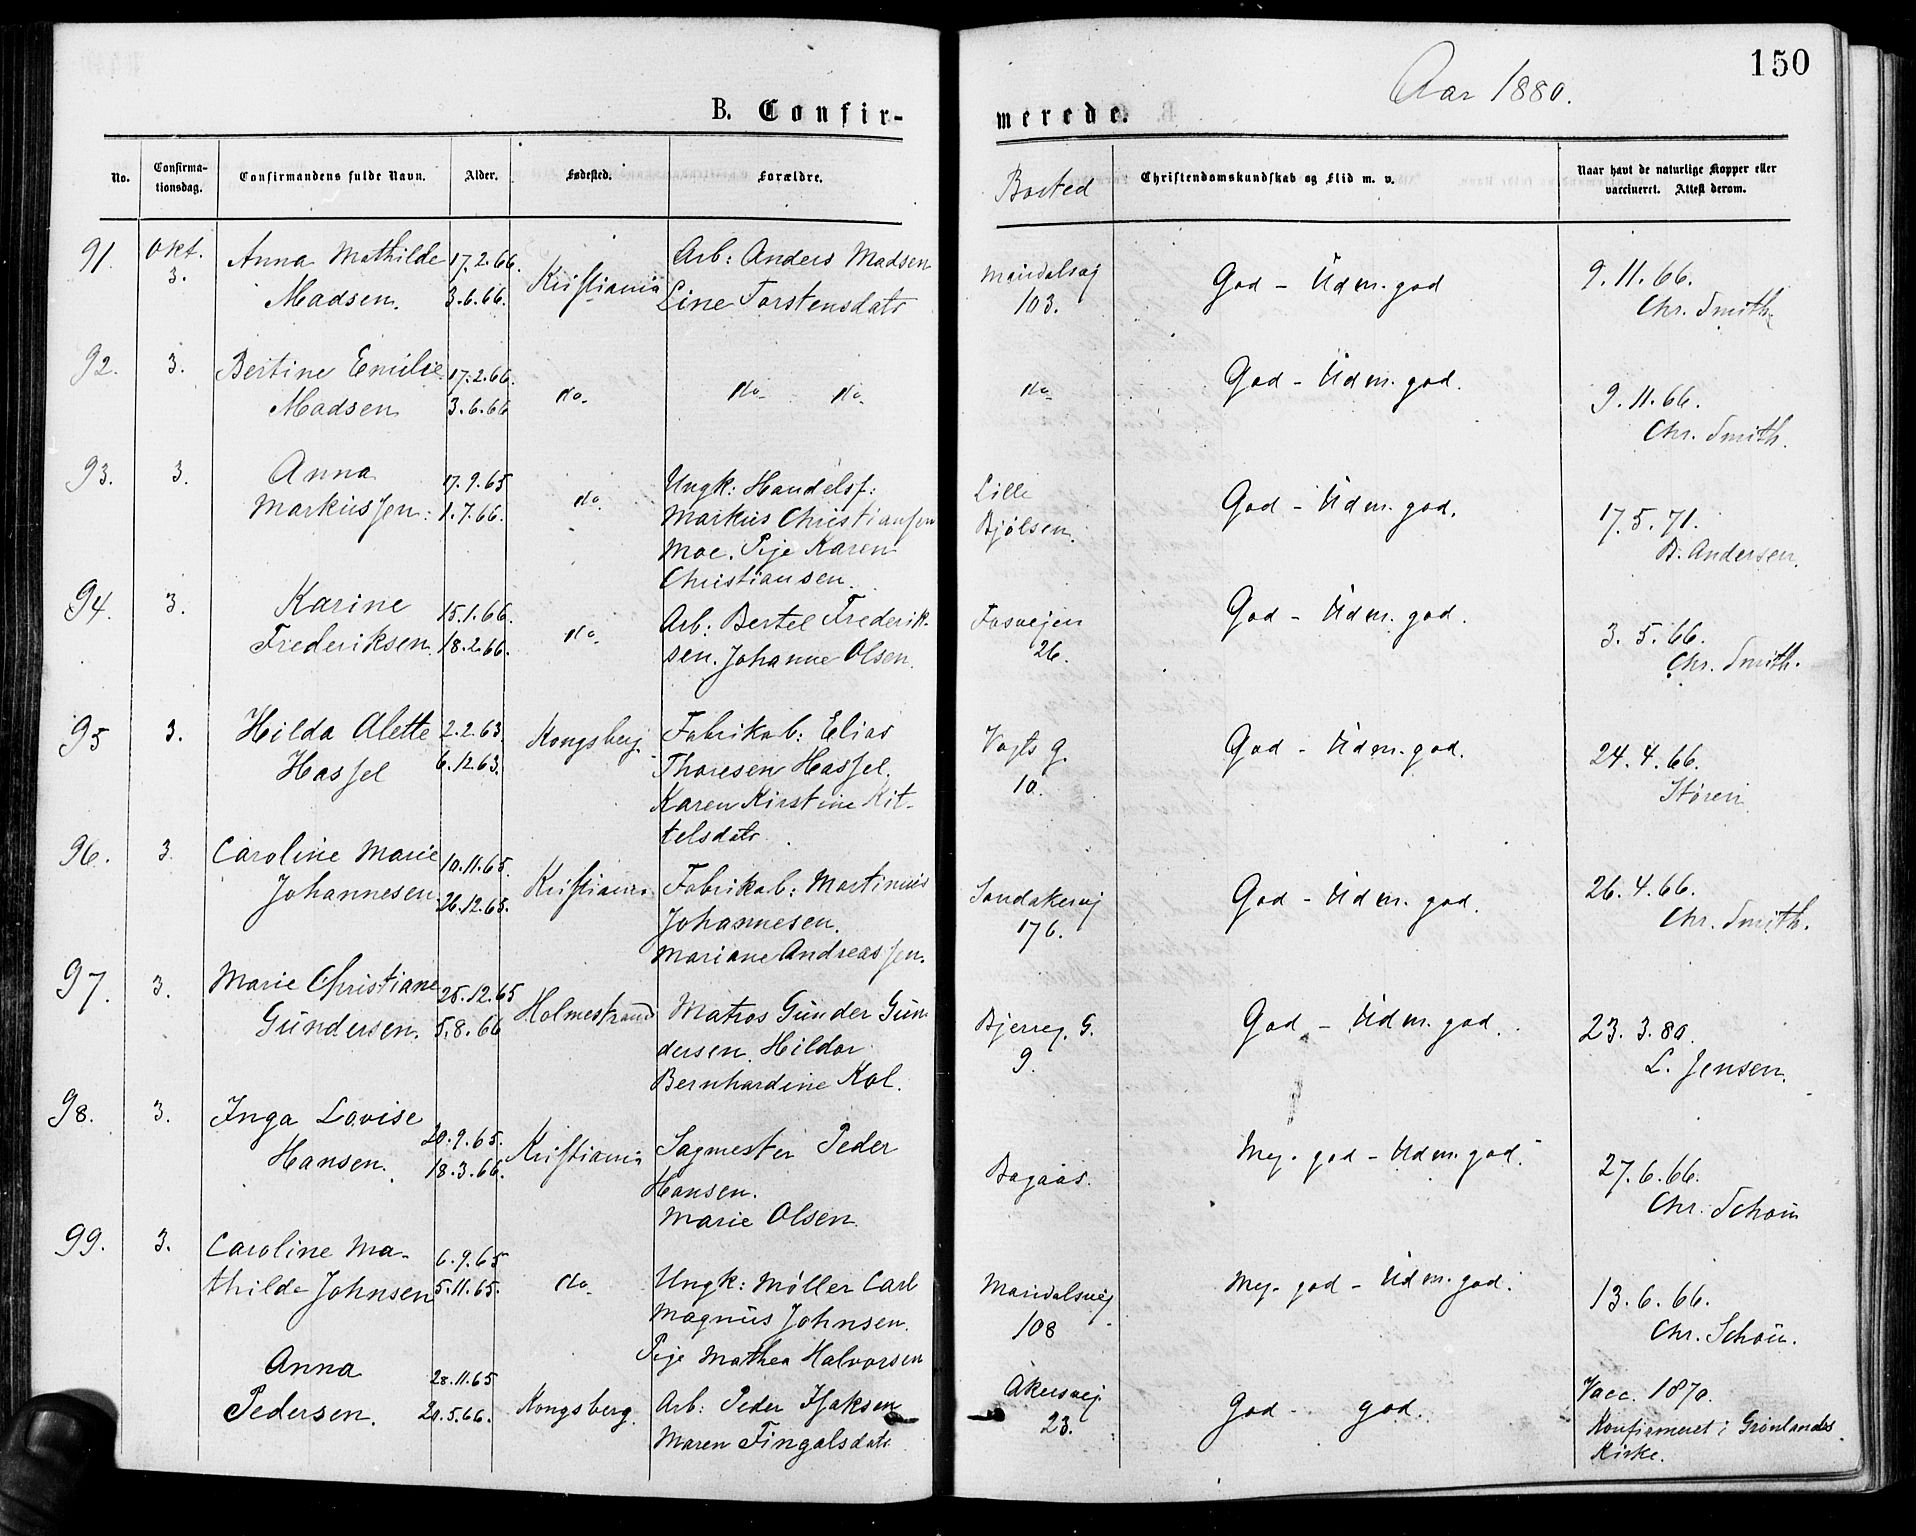 150
Aar 1880.
B. Confir-
merede.
No.
Confirma-
tionsdag.
Confirmandens fulde Navn.
Alder.
Fødested.
Forældre.
Bosted
Christendomskundskab og Flid m. v.
Naar havt de naturlige Kopper eller
vaccineret. Attest derom.
91. Okt. Anna Mathilde 17.2.66. Kristiania Arb: Anders Madsen Maridalsvej God - Udm. god 9.11.66.
3. Madsen. 3.6.66. Line Torstensdatr 103. Chr. Smith
92. 3. Bertine Emilie 17.2.66. do. do. do. do. God - Udm. god. 9.11.66.
Madsen 3.6.66 Chr. Smith.
93. 3. Anna 17.9.65 do. Ungk: Handelsf: Lille God - Udm. god. 17.5.71.
Markussen: 1.7.66. Markus Christiansen Bjølsen. B. Andersen.
Moe. Pije Karen
Christiansen.
94. 3. Karine 15.1.66. do. Arb: Bertel Frederik- Fosvejen God - Udm. god. 3.5.66.
Frederiksen. 18.2.66. sen. Johanne Olsen. 26. Chr. Smith.
95 3. Hilda Alette 2.2.63. Kongsberg. Fabrikab: Elias Vogts g. God - Udm. god. 24.4.66.
Hassel 6.12.63. Thoresen Hassel. 10. Støren
Karen Kirstine Kit-
telsdatr.
96. 3. Caroline Marie 10.11.65. Kristiania Fabrikab: Martinius Sandakervej God - Udm. god. 26.4.66.
Johannesen. 26.12.65. Johannesen. 176. Chr. Smith.
Mariane Andreassen.
97. 3. Marie Christiane 25.12.65 Holmestrand Matros Gunder Gun Bjerreg. G. God - Udm. god. 23.3.80.
Gundersen. 5.8.66 dersen. Hildor 9. L. Jensen.
Bernhardine Kol.
98. 3. Inga Lovise 20.9.65. Kristiania Sagmester Peder Bagaas. Meg. god - Udm. god. 27.6.66.
Hansen. 18.3.66. Hansen. Chr. Schou
Marie Olsen.
99. 3. Caroline Ma- 6.9.65 do. Ungk: Møller Carl Maridalsvej Meg. god - Udm. god. 13.6.66.
thilde Johnsen 5.11.65. Magnus Johnsen. 108 Chr. Schou.
Pije Mathea Halvorsen
Anna 28.11.65 Kongsberg. Arb: Peder Isaksen Akersvej. God - god. Vacc. 1870.
Pedersen. 20.5.66. Maren Fingalsdatr 23. Konfirmeret i Grønlands
Kirke.